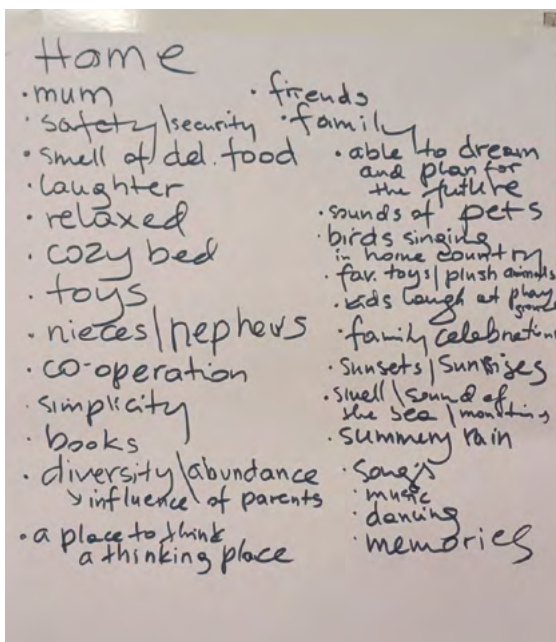 Home
· mum
· safety/security
· smell of del. food
· laughter
· relaxed
· cozy bed
· toys
· nieces/nephews
· co-operation
· simplicity
· books
· diversity/abundance
influence of parents
· a place to think
a thinking place
· friends
· family
· able to dream
and plan for
the future
· sounds of pets
· birds singing
in home country
· fav. toys/plush animals
· kids laugh at play
ground
· family celebration
· sunsets/sunrises
· smell/sound of
the sea/
· summery rain
· songs
· music
· dancing
· memories